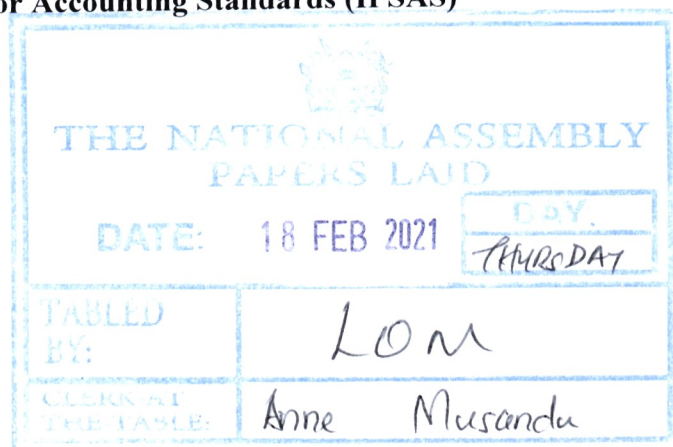 or Accounting Standards (IPSAS)
THE NATIONAL ASSEMBLY
PAPERS LAID
DATE: 18 FEB 2021
DAY.
THURSDAY
TABLED BY:
LOM
CLERK AT THE TABLE:
Anne Musandu